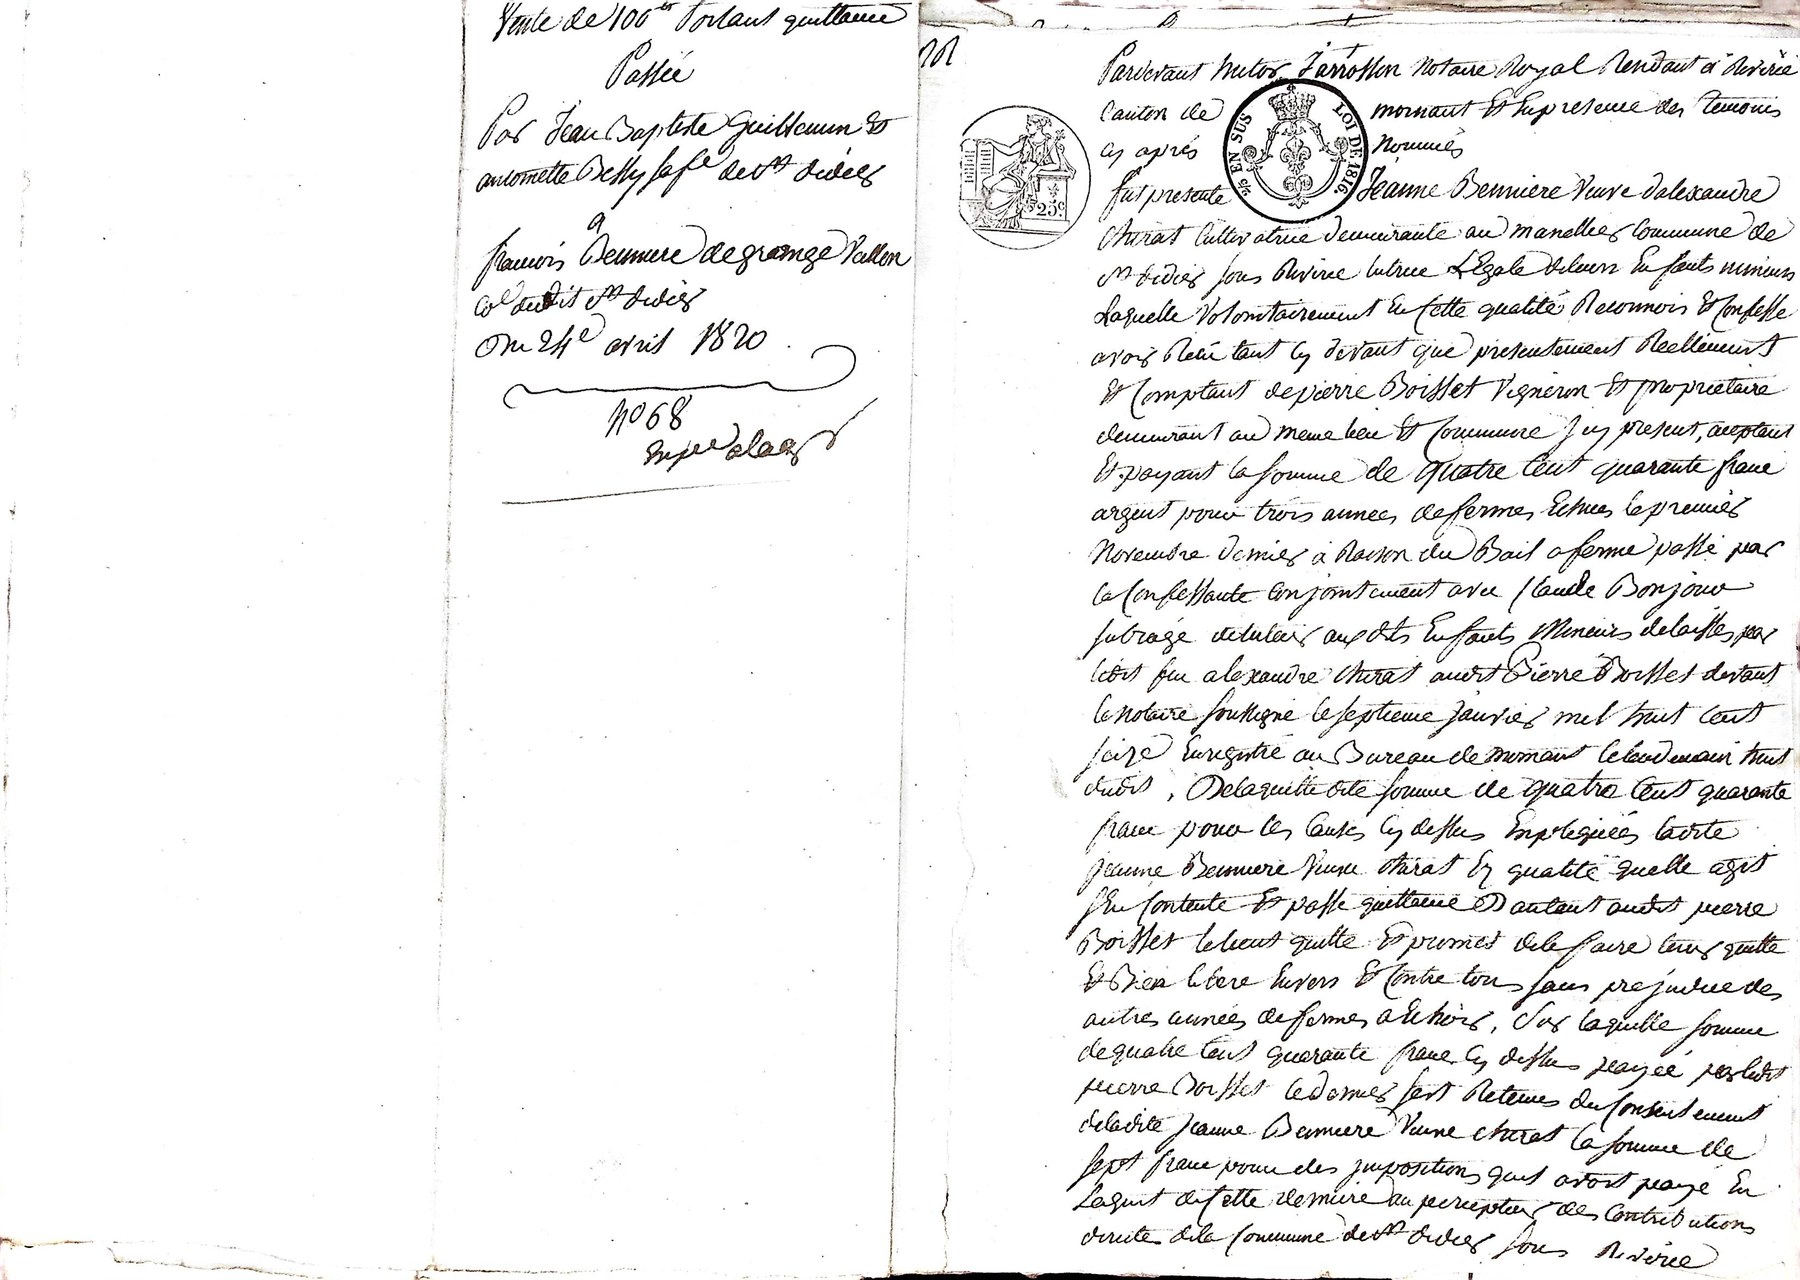 Vente de 100 fs Portant quittance
Passée
Par Jean Baptiste Guillemin Et
antoinette Bessy sa fe de st didier
a
francois Benniere de grange Vallon
Ce dudit st didier
Du 24e avril 1820
No 68
Expée
202
Pardevant Notaire Royal Residant à Riverie
Canton de mornant Et En presence des temoins
cy après Nommés
fut presente Jeanne Benniere Veuve dalexandre
Chirat Cultivatrice demeurante au Commune de
st didier sous Riverie tutrice Légale de leurs Enfants mineurs
Laquelle Volontairement En Cette qualité Reconnois Et Confesse
avoir Recu tant cy devant que presentement Reellement
Et Comptant de pierre Boisset Vigneron Et propriétaire
demeurant au meme lieu Et Commune J cy present, acceptant
Et payant la somme de quatre Cent quarante franc
argent pour trois années de fermes Echues le premier
Novembre dernier à Raison du Bail a ferme passé par
la Confessante Conjointement avec Claude Bonjour
subrogé detuteur aux dts Enfants Mineurs delaisses par
ledit feu alexandre Chirat audit Pierre Boisset devant
le Notaire soussigné le septieme Janvier mil huit Cent
seize Enregistré au Bureau de mornant le lendemain huit
dudit, De laquelle dite somme de quatre Cent quarante
franc pour les Causes cy dessus Expliquées ladite
Jeanne Benniere Veuve Chirat En qualité quelle agit
s'En Contente Et passe quittance D'autant audit pierre
Boisset le tient quitte Et promet de le faire tenir quitte
Et Bien libere Envers Et Contre tous sans prejudice des
autres années de fermes a Echoir, Sur laquelle somme
de quatre Cent quarante franc cy dessus payée par ledit
pierre Boisset ce dernier s'est Retenu du Consentement
de ladite Jeanne Benniere Veuve Chirat la somme de
sept franc pour des jmpositions quil avoit payé En
L'aquit de Cette derniere au percepteur des Contributions
directes de la Commune de st didier sous Riverie
% EN SUS LOI DE 1816.
25c